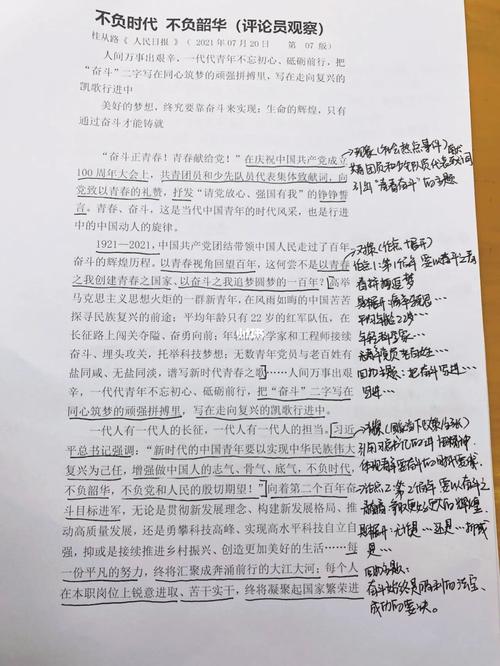 不负时代 不负韶华（评论员观察）
桂从路 《 人民日报 》（ 2021 年 07 月 20 日 第 07 版）
人间万事出艰辛，一代代青年不忘初心、砥砺前行，把
“奋斗”二字写在同心筑梦的顽强拼搏里，写在走向复兴的
凯歌行进中
美好的梦想，终究要靠奋斗来实现；生命的辉煌，只有
通过奋斗才能铸就
“奋斗正青春！青春献给党！”在庆祝中国共产党成立
100 周年大会上，共青团员和少先队员代表集体致献词，向
党致以青春的礼赞，抒发“请党放心、强国有我”的铮铮誓
言。青春、奋斗，这是当代中国青年的时代风采，也是行进
中的中国动人的旋律。
1921—2021，中国共产党团结带领中国人民走过了百年
奋斗的辉煌历程。以青春视角回望百年，这何尝不是以青春
之我创建青春之国家、以奋斗之我追梦圆梦的一百年？高举
马克思主义思想火炬的一群新青年，在风雨如晦的中国苦苦
探寻民族复兴的前途；平均年龄只有 22 岁的红军队伍，在
长征路上闯关夺隘、奋勇向前；年轻的科学家和工程师接续
奋斗、埋头攻关，托举科技梦想；无数青年党员与老百姓有
盐同咸、无盐同淡，谱写新时代青春之歌……人间万事出艰
辛，一代代青年不忘初心、砥砺前行，把“奋斗”二字写在
同心筑梦的顽强拼搏里，写在走向复兴的凯歌行进中。
一代人有一代人的长征，一代人有一代人的担当。习近
平总书记强调：“新时代的中国青年要以实现中华民族伟大
复兴为己任，增强做中国人的志气、骨气、底气，不负时代，
不负韶华，不负党和人民的殷切期望！”向着第二个百年奋
斗目标进军，无论是贯彻新发展理念、构建新发展格局、推
动高质量发展，还是勇攀科技高峰、实现高水平科技自立自
强，抑或是接续推进乡村振兴、创造更加美好的生活……每
一份平凡的努力，终将汇聚成奔涌前行的大江大河；每个人
在本职岗位上锐意进取、苦干实干，终将凝聚起国家繁荣进
共青团员和少先队员代表致献词
引出“青春奋斗”的主题
平均年龄22岁…
年轻科学家…
回扣主题：把奋斗写进…
写进…
回扣主题：
奋斗始终是胜利的法宝、
成功的要诀。
小红书